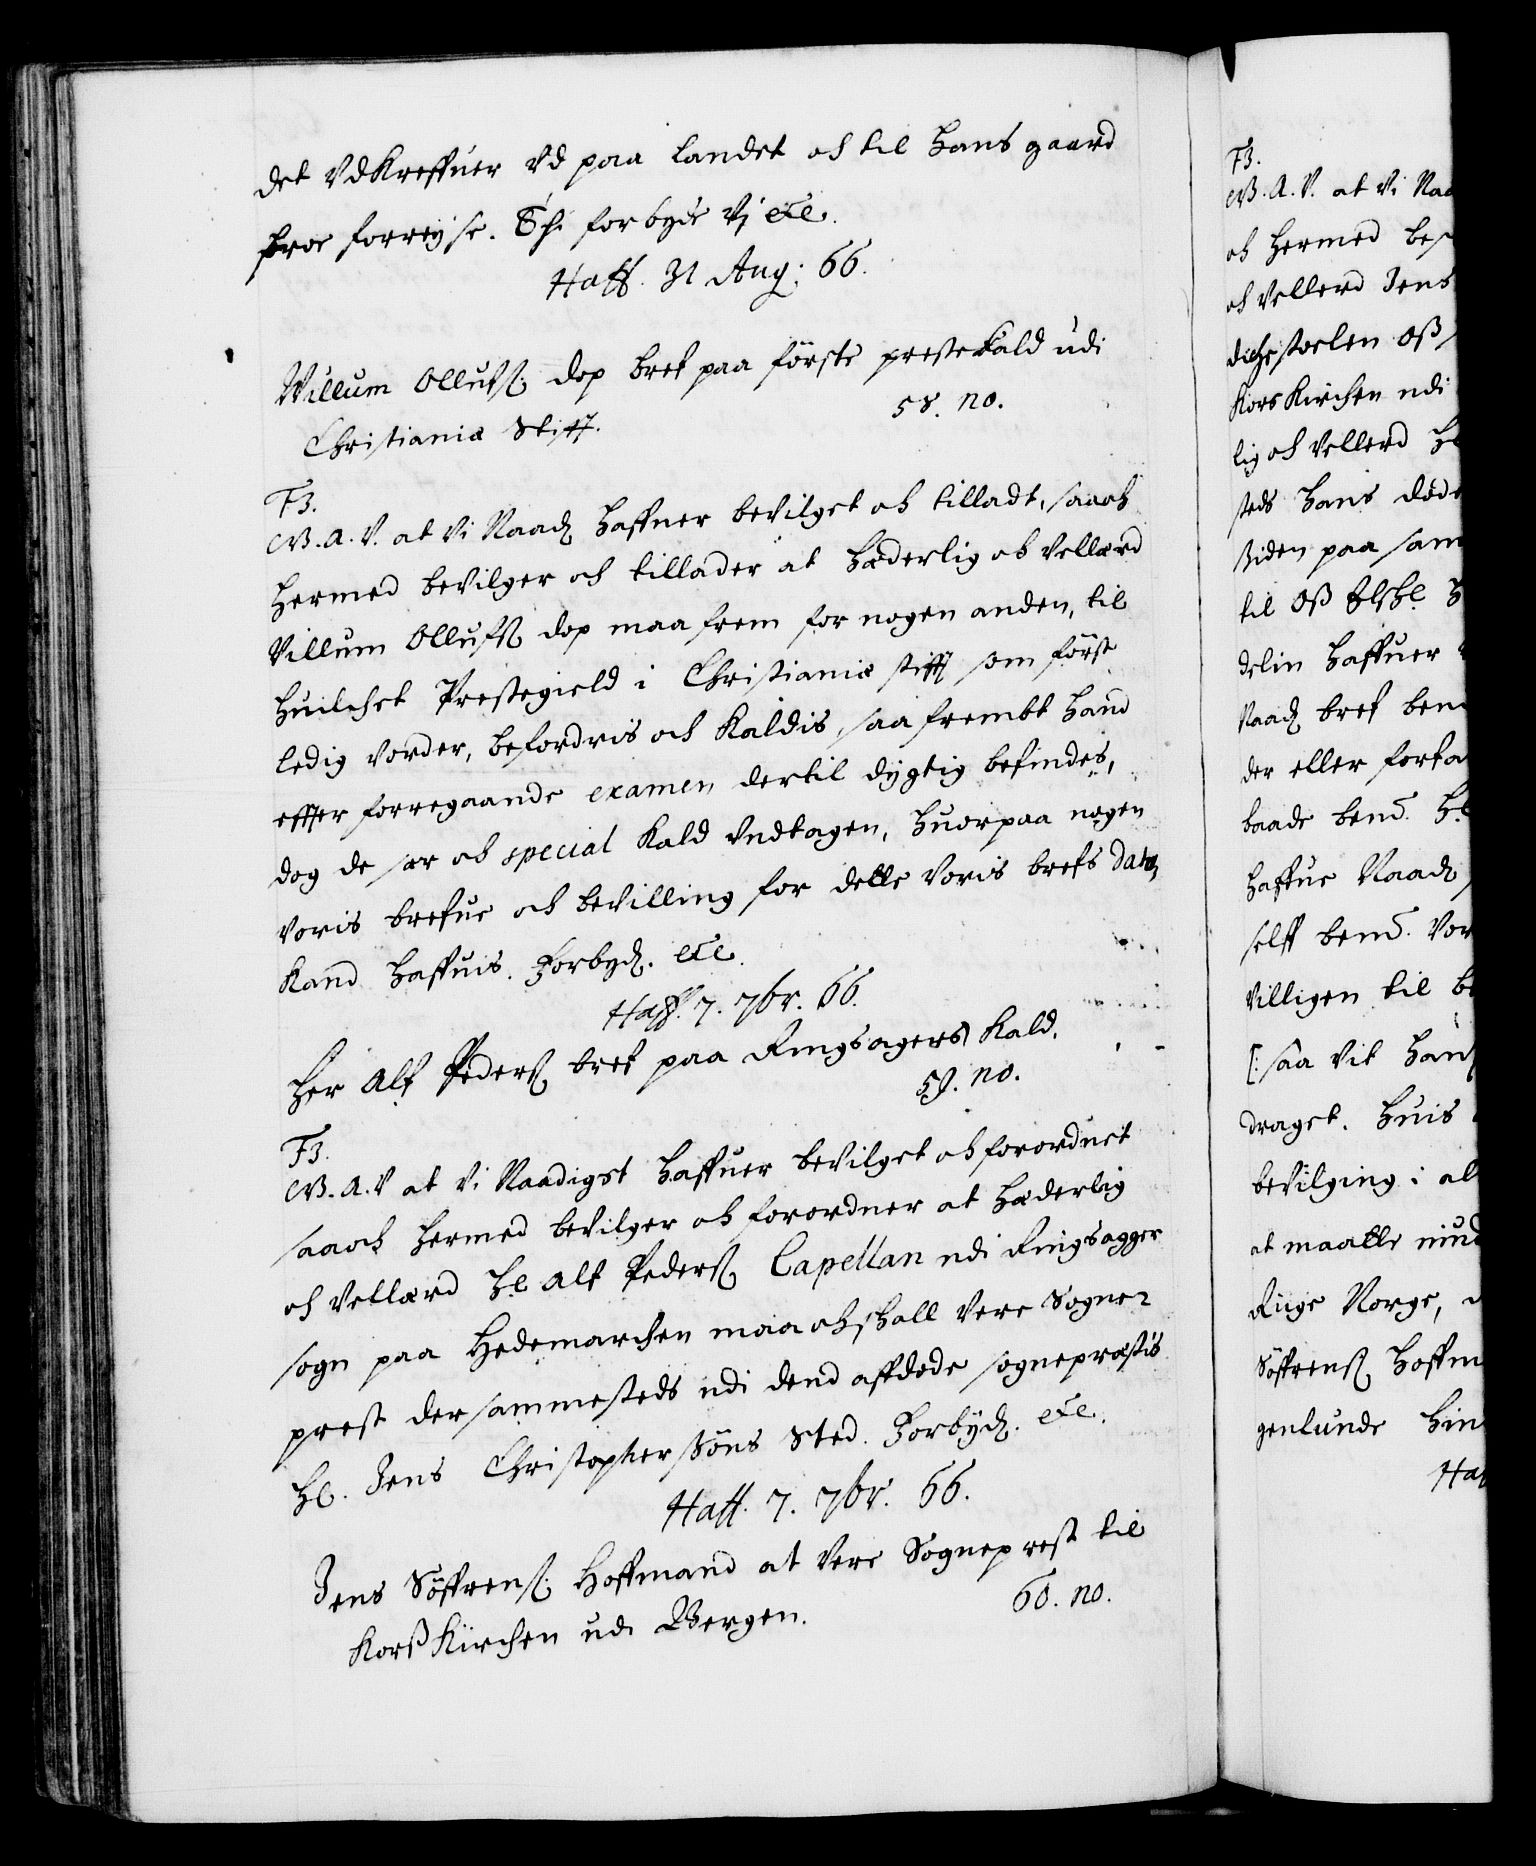 det VdKreffuer vd paa landet och til hans gaard
forreyse. forbyde Vj etc.
Haff. 31 Aug: 66.
Willum Ollufs. dop bref paa förste prestekald udi
Christianiæ Stift. 58. no.
F3.
G.A.V. at Vi Naad. haffuer bevilget och tilladt, saa och
hermed bevilger och tillader at hæderlig och Vellærd
Villum Ollufs. dop maa frem for nogen anden, til
huilchet Prestegield i Christianiæ stifft som först
ledig vorder, befordris och Kaldis, saafrembt hand
effter forregaaende examen dertil dygtig befindes,
dog de ser och special Kald Vndtagen, huorpaa nogen
Voris brefue och bevilling for dette Voris brefs Dato,
Kand haffuis. Forbyd. etc.
Haff. 7. 7br. 66.
Her Alf Peders. bref paa Ringsagers Kald.
59. no.
F3.
G.A.V at Vi Naadigst haffuer bevilget och forordnet
saa och hermed bevilger och forordner at hæderlig
och Vellærd Hl. Alf Peders. Capellan udi Ringsagger
sogn paa Hedemarchen maa och schall Vere Sogne-
prest dersammesteds udi dend affdøde sogneprestis
Hl. Jens Christophersöns Sted. Forbyd. etc.
Haff. 7. 7br. 66.
Jens Söffrens. Hoffmand at Vere Sogneprest til
KorßKirchen udi Bergen. 60. no.
F3.
G.A.V. at Vi Naa
och hermed bes
och Vellerd Jens
dichestoelen Oß
Kors Kirchen udi
lig och Vellerd
steds hans døde
siden paa sam
til Oß
delin haffuer
Naad. bref ben
der eller forta
baade bend. Hl
haffue Naad.
self bend. Vor
villigen til be
[: saa Vit hans
draget. huis
bevilging i al
at maatte niud
Riige Norge,
Söffrens. hoffm
genlunde hin
Haf